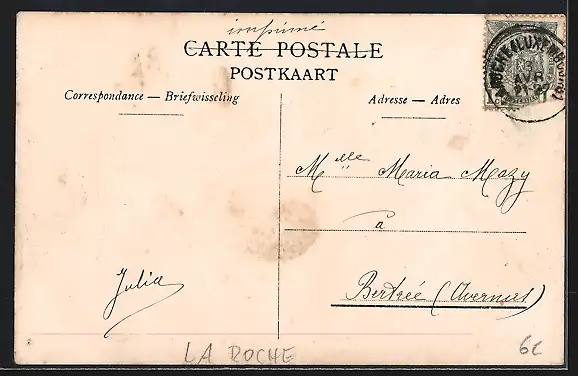 imprimé
CARTE POSTALE
POSTKAART
Correspondance — Briefwisseling
Adresse — Adres
AVR
Mlle Maria Mazy
à
Bertrée (Avernas)
Julia
LA ROCHE
6€